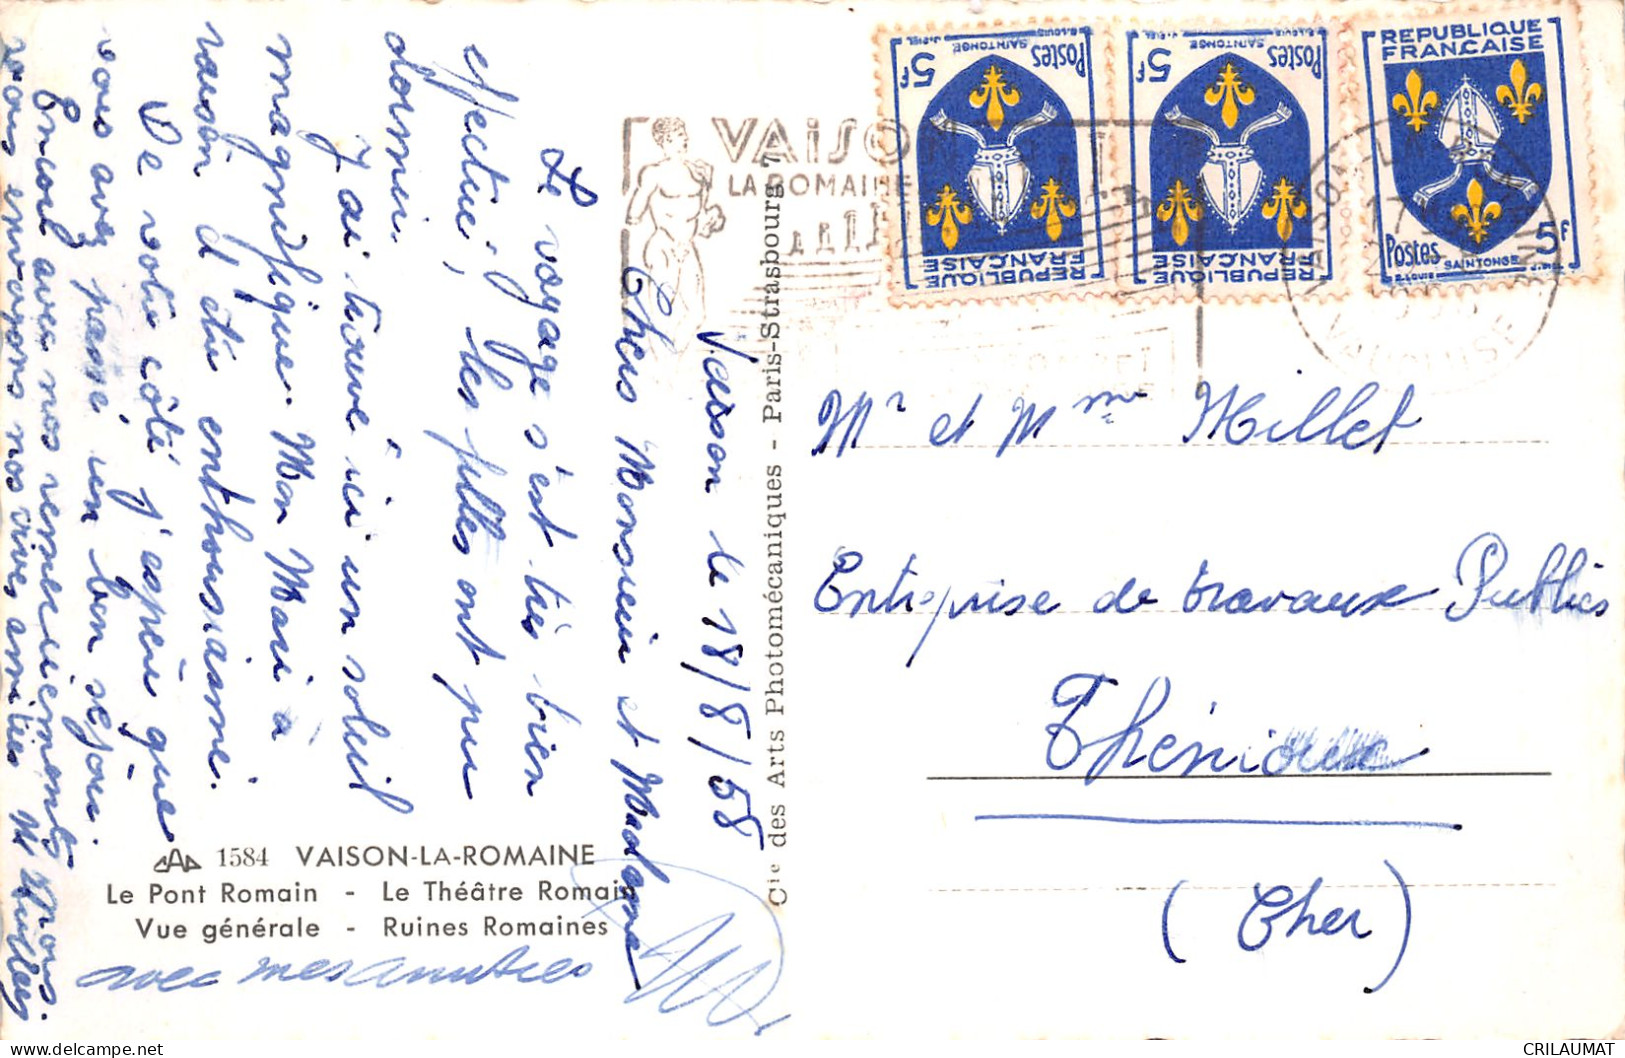 Vaison le 18/8/58
Chers Monsieur et Madame
Le voyage s'est très bien
effectué, les filles ont pu
dormir.
J'ai trouvé ici un soleil
magnifique. Mon Mari a
vaison d'été enthousiasmé.
De votre côté j'espère que
vous avez passé un bon séjour.
Encore avec nos remerciements nous
vous envoyons nos vives amitiés
avec mes amitiés
1584 VAISON-LA-ROMAINE
Le Pont Romain - Le Théâtre Romain
Vue générale - Ruines Romaines
Cie des Arts Photomécaniques - Paris-Strasbourg 7
VAISON
LA ROMAINE
5F Postes
SAINTONGE
REPUBLIQUE
FRANÇAISE
5F Postes
SAINTONGE
REPUBLIQUE
FRANÇAISE
REPUBLIQUE
FRANÇAISE
Postes 5F
SAINTONGE
VAUCLUSE
Mr et Mme Millet
Entreprise de travaux Publics
Thénioux
(Cher)
CRILAUMAT